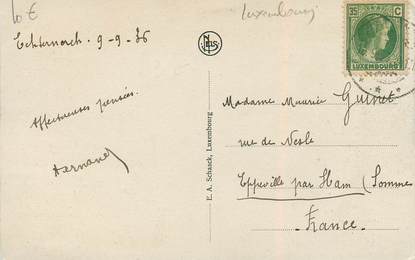 10 €
luxembourg
Echternach. 9-9-36
NELS
35 C
LUXEMBOURG
Affectueuses pensées.
E. A. Schaack, Luxembourg
Madame Maurice
rue de Nesle
Eppeville par Ham (Somme
France.